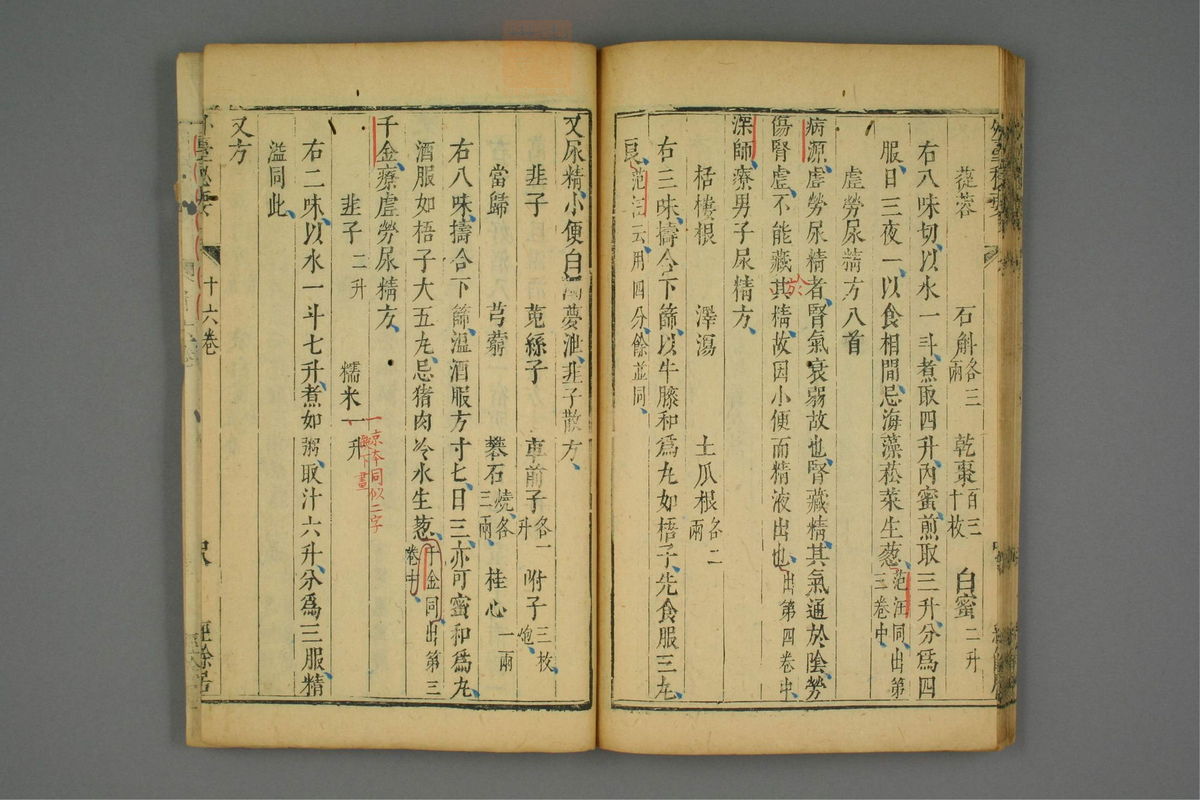 蓯蓉 石斛各三兩 乾棗百三十枚 白蜜二升
右八味切以水一斗煮取四升內蜜煎取三升分為四
服日三夜一以食相間忌海藻菘菜生葱范汪同出第三卷中
虛勞尿精方八首
病源虛勞尿精者腎氣衰弱故也腎藏精其氣通於陰勞
傷腎虛不能藏其精故因小便而精液出也出第四卷中
於
深師療男子尿精方
栝樓根 澤瀉 土瓜根各二兩
右三味擣合下篩以牛膝和為丸如梧子先食服三丸
良范汪云用四分餘並同
又尿精小便白濁夢泄韭子散方
韭子 菟絲子 車前子各一升 附子三枚炮
當歸 芎藭 礬石燒各三兩 桂心一兩
右八味擣合下篩溫酒服方寸匕日三亦可蜜和為丸
酒服如梧子大五丸忌猪肉冷水生葱千金同出第三卷中
千金療虛勞尿精方
韭子二升 糯米一升
一京本同似二字無下畫
右二味以水一斗七升煮如粥取汁六升分為三服精
溢同此
又方
外臺秘要 十六卷 經餘居